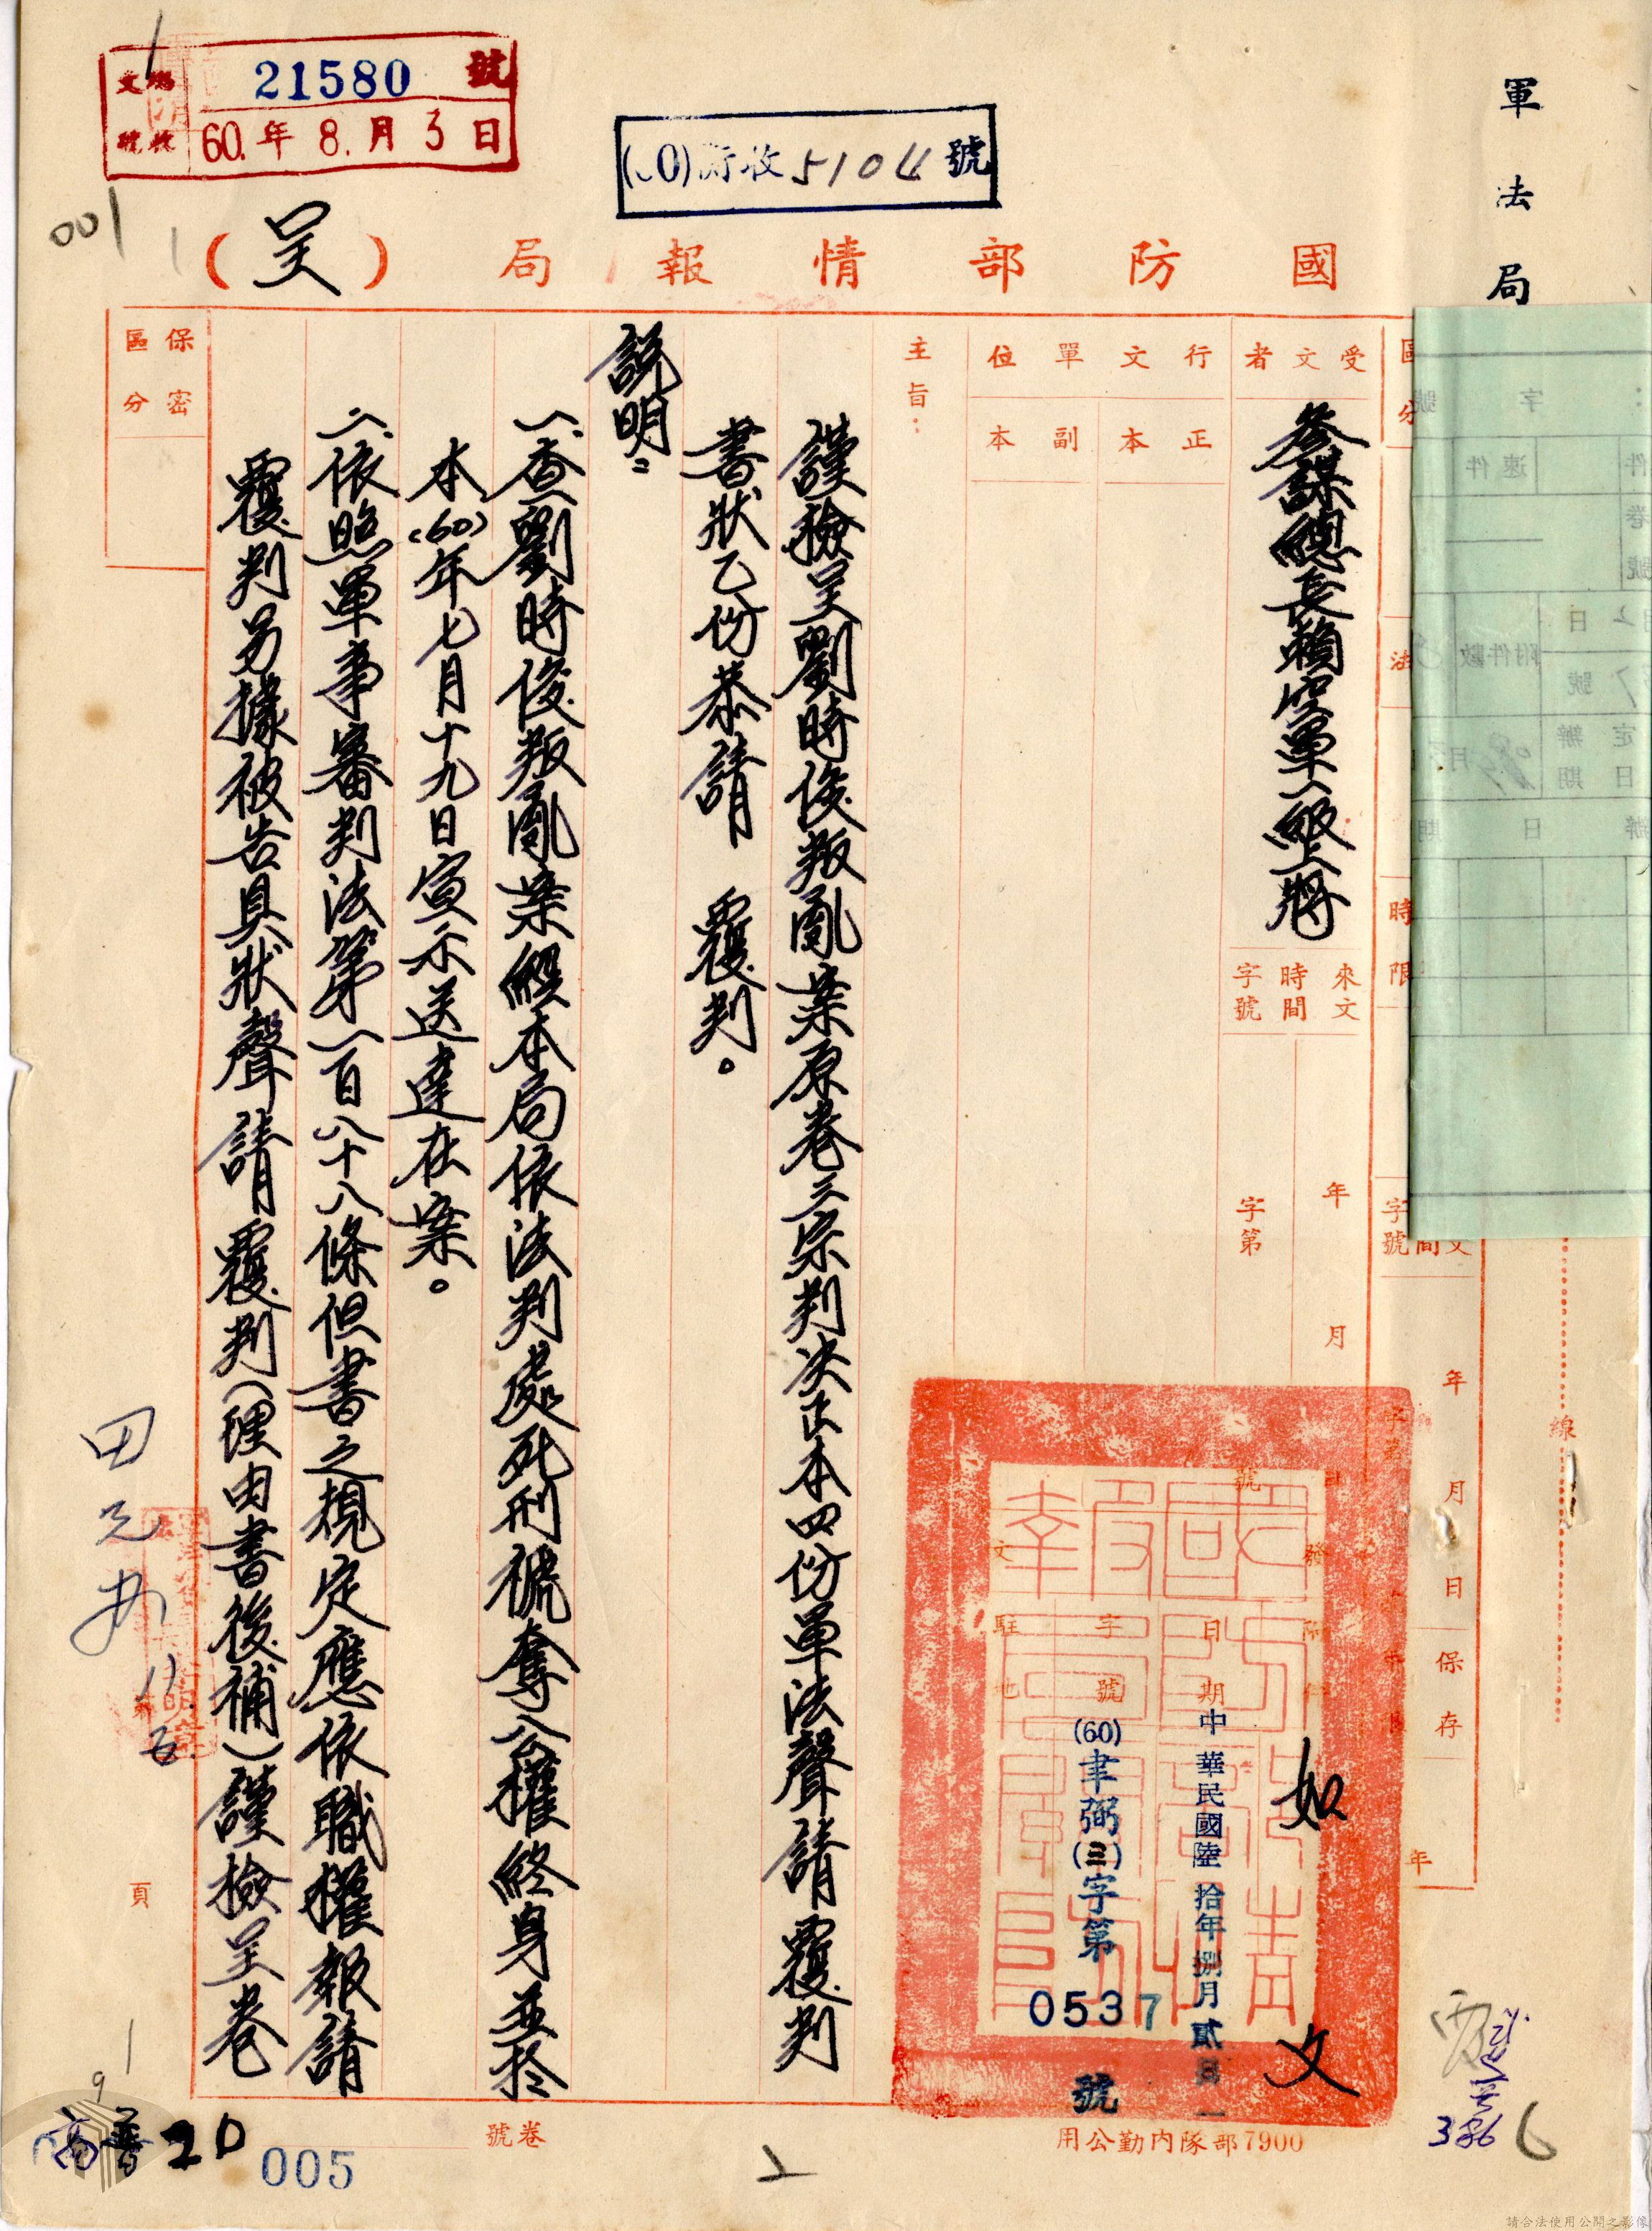 軍法局
號
21580
60.年8.月3日
收 5104 號
001
國防部情報局（呈）
受文者
參謀總長賴空軍一級上將
來文
時間
字號
年 月
字第
行文單位
正本
副本
如文
發
日期
中華民國陸拾年捌月貳日
字號
(60)聿弼(三)字第0537號
駐地
主旨：
謹檢呈劉時俊叛亂案原卷三宗判決正本四份軍法聲請覆判
書狀乙份恭請 覆判。
說明：
一、查劉時俊叛亂案經本局依法判處死刑褫奪公權終身並於
本(60)年七月十九日宣示送達在案。
二、依照軍事審判法第一百八十八條但書之規定應依職權報請
覆判另據被告具狀聲請覆判(理由書後補)謹檢呈卷
保密區分
時限
年 月 日
保存
年
線
速件
附件數
田元
頁
卷號
7900部隊內勤公用
386
6
20
005
請合法使用公開之影像